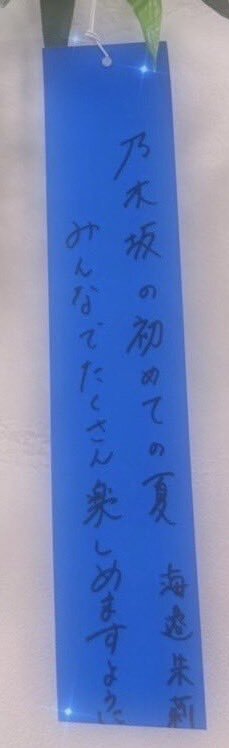 乃木坂の初めての夏
みんなでたくさん楽しめますように
海邉朱莉